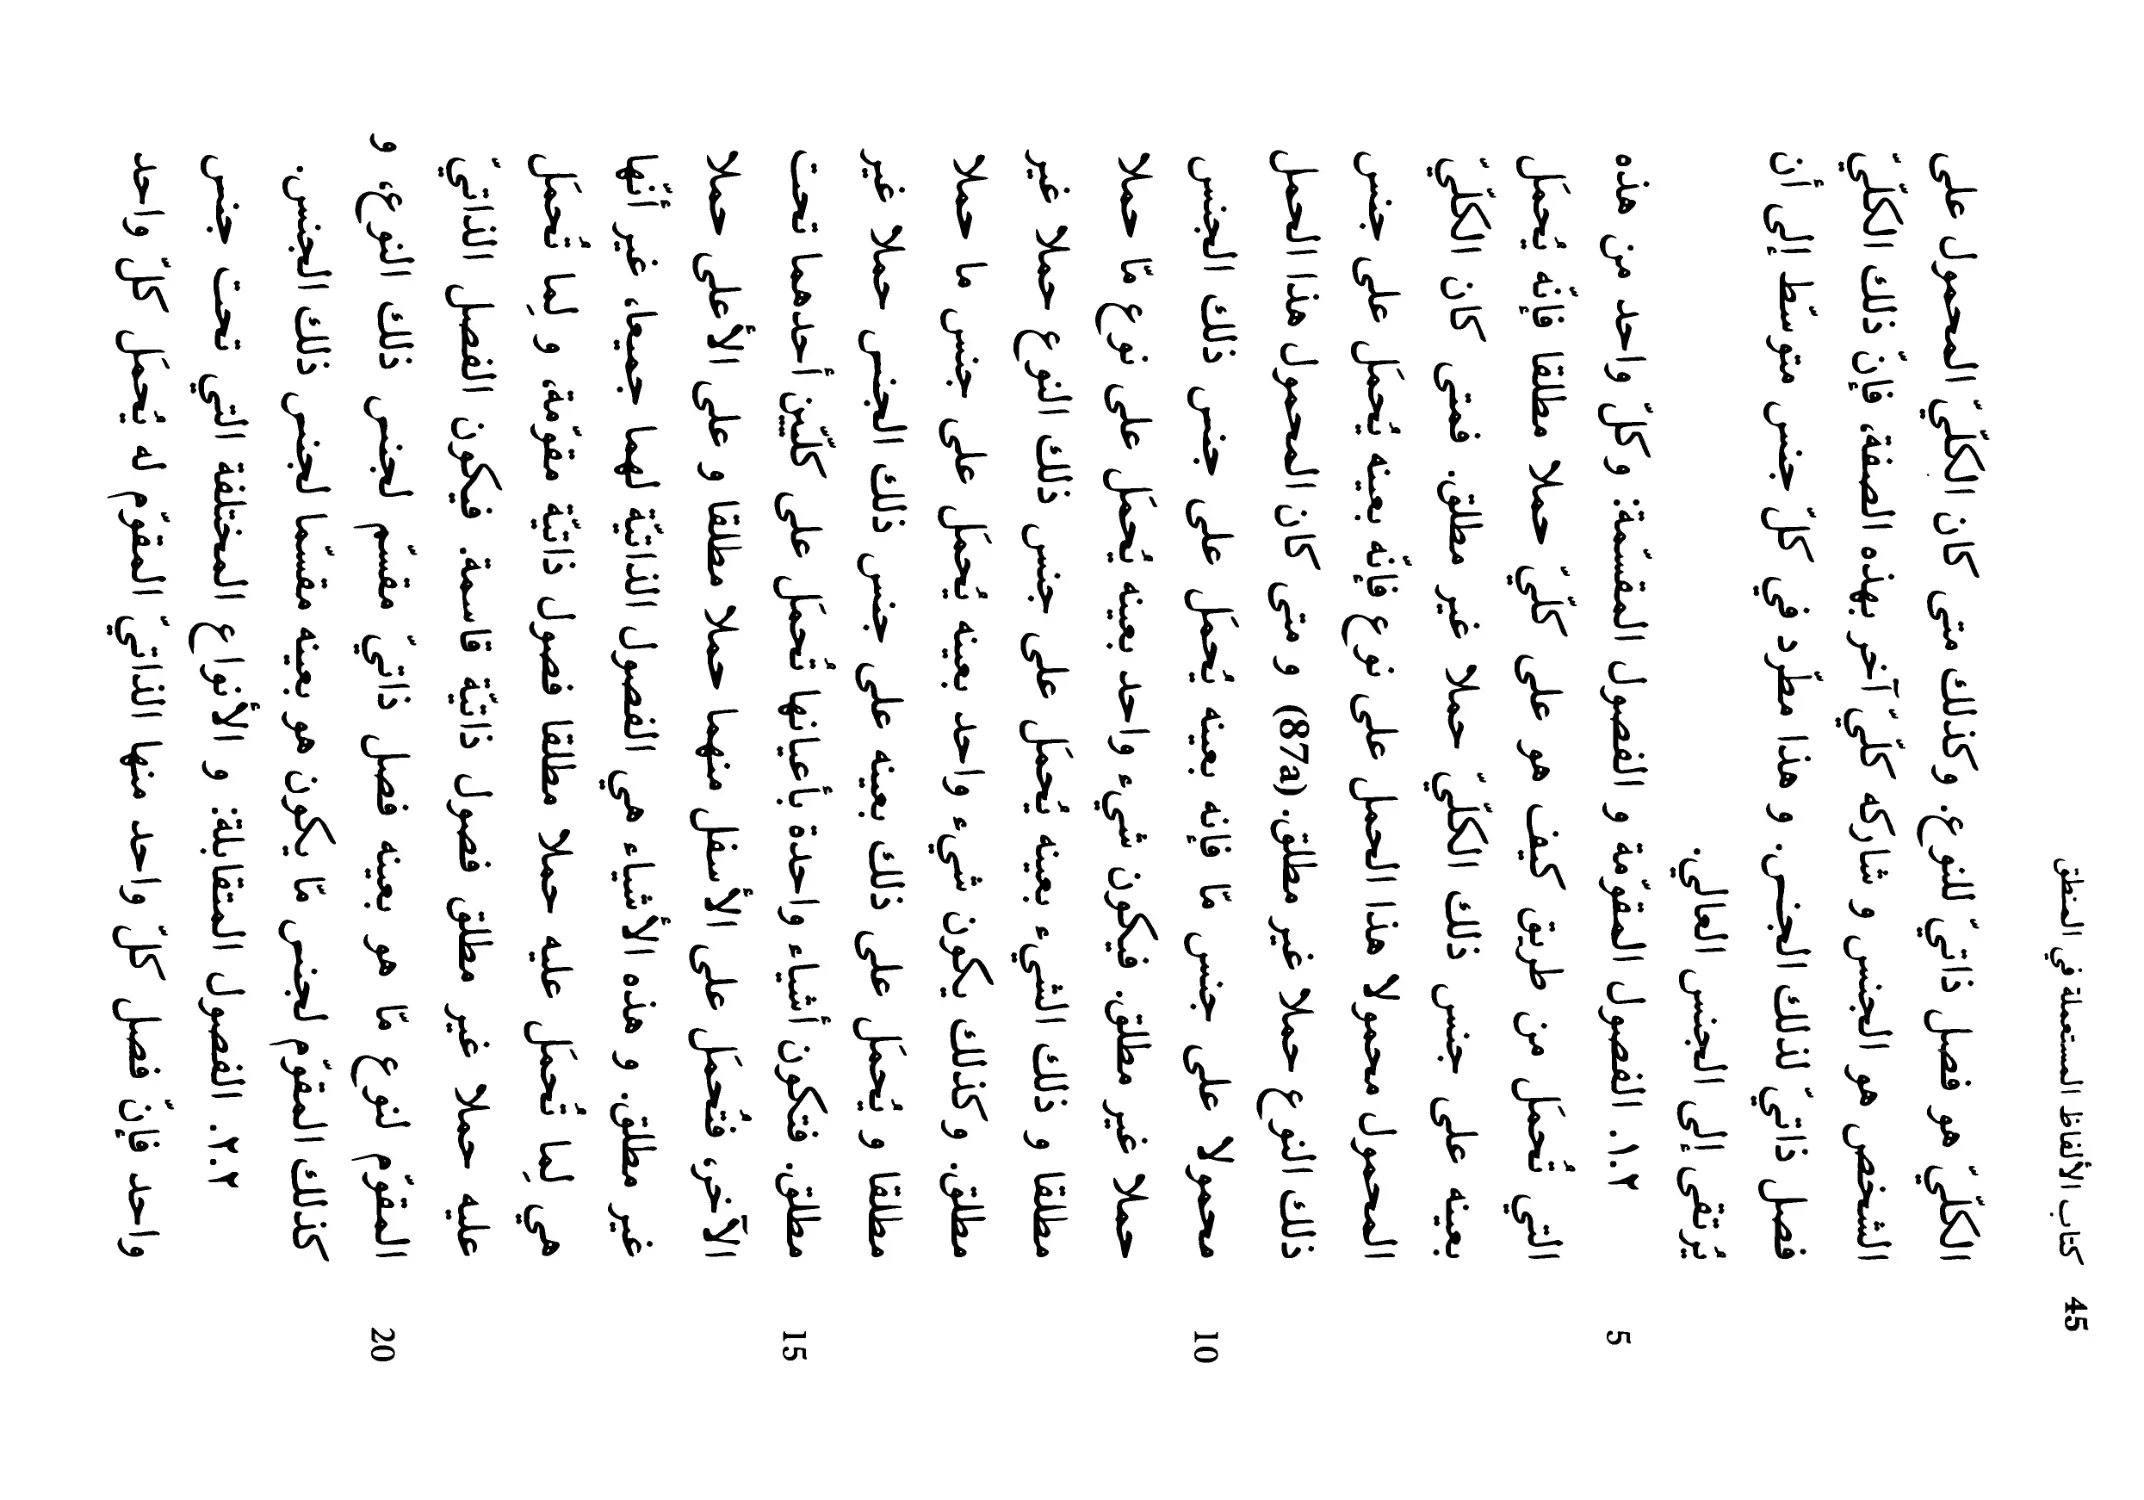 45 كتاب الألفاظ المستعملة في المنطق
الكلّيّ هو فصل ذاتيّ للنوع. وكذلك متى كان الكلّيّ المحمول على
الشخص هو الجنس و شاركه كلّيّ آخر بهذه الصفة، فإنّ ذلك الكلّيّ
فصل ذاتيّ لذلك الجنس. و هذا مطّرد في كلّ جنس متوسّط إلى أن
يُرتقى إلى الجنس العالي.
٢.١. الفصول المقوّمة و الفصول المقسّمة: وكلّ واحد من هذه 5
التي تُحمَل من طريق كيف هو على كلّيّ حملا مطلقا فإنّه يُحمَل
بعينه على جنس ذلك الكلّيّ حملا غير مطلق. فمتى كان الكلّيّ
المحمول محمولا هذا الحمل على نوع فإنّه بعينه يُحمَل على جنس
ذلك النوع حملا غير مطلق. (87a) و متى كان المحمول هذا الحمل
محمولا على جنس مّا فإنه بعينه يُحمَل على جنس ذلك الجنس 10
حملا غير مطلق. فيكون شيء واحد بعينه يُحمَل على نوع مّا حملا
مطلقا و ذلك الشيء بعينه يُحمَل على جنس ذلك النوع حملا غير
مطلق. وكذلك يكون شيء واحد بعينه يُحمَل على جنس ما حملا
مطلقا و يُحمَل على ذلك بعينه على جنس ذلك الجنس حملا غير
مطلق. فتكون أشياء واحدة بأعيانها تُحمَل على كلّيّين أحدهما تحت 15
الآخر، فتُحمَل على الأسفل منهما حملا مطلقا و على الأعلى حملا
غير مطلق. و هذه الأشياء هي الفصول الذاتيّة لهما جميعا، غير أنّها
هي لِما تُحمَل عليه حملا مطلقا فصول ذاتيّة مقوّمة، و لِما تُحمَل
عليه حملا غير مطلق فصول ذاتيّة قاسمة. فيكون الفصل الذاتيّ
المقوّم لنوع مّا هو بعينه فصل ذاتيّ مقسّم لجنس ذلك النوع، و 20
كذلك المقوّم لجنس مّا يكون هو بعينه مقسّما لجنس ذلك الجنس.
٢.٢. الفصول المتقابلة: و الأنواع المختلفة التي تحت جنس
واحد فإنّ فصل كلّ واحد منها الذاتيّ المقوّم له يُحمَل كلّ واحد